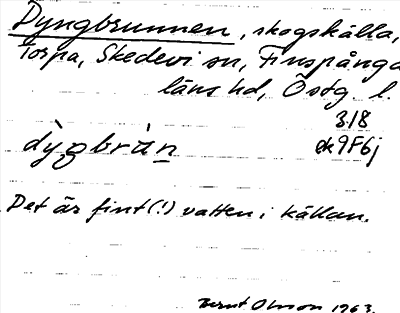 Dyngbrunnen, skogskälla,
Torpa, Skedevi sn, Finspånga
läns hd, Östg. l.
3/8
ek 9F6j
dỳgbràn
Det är fint(!) vatten i källan.
Bernt Olsson 1963.